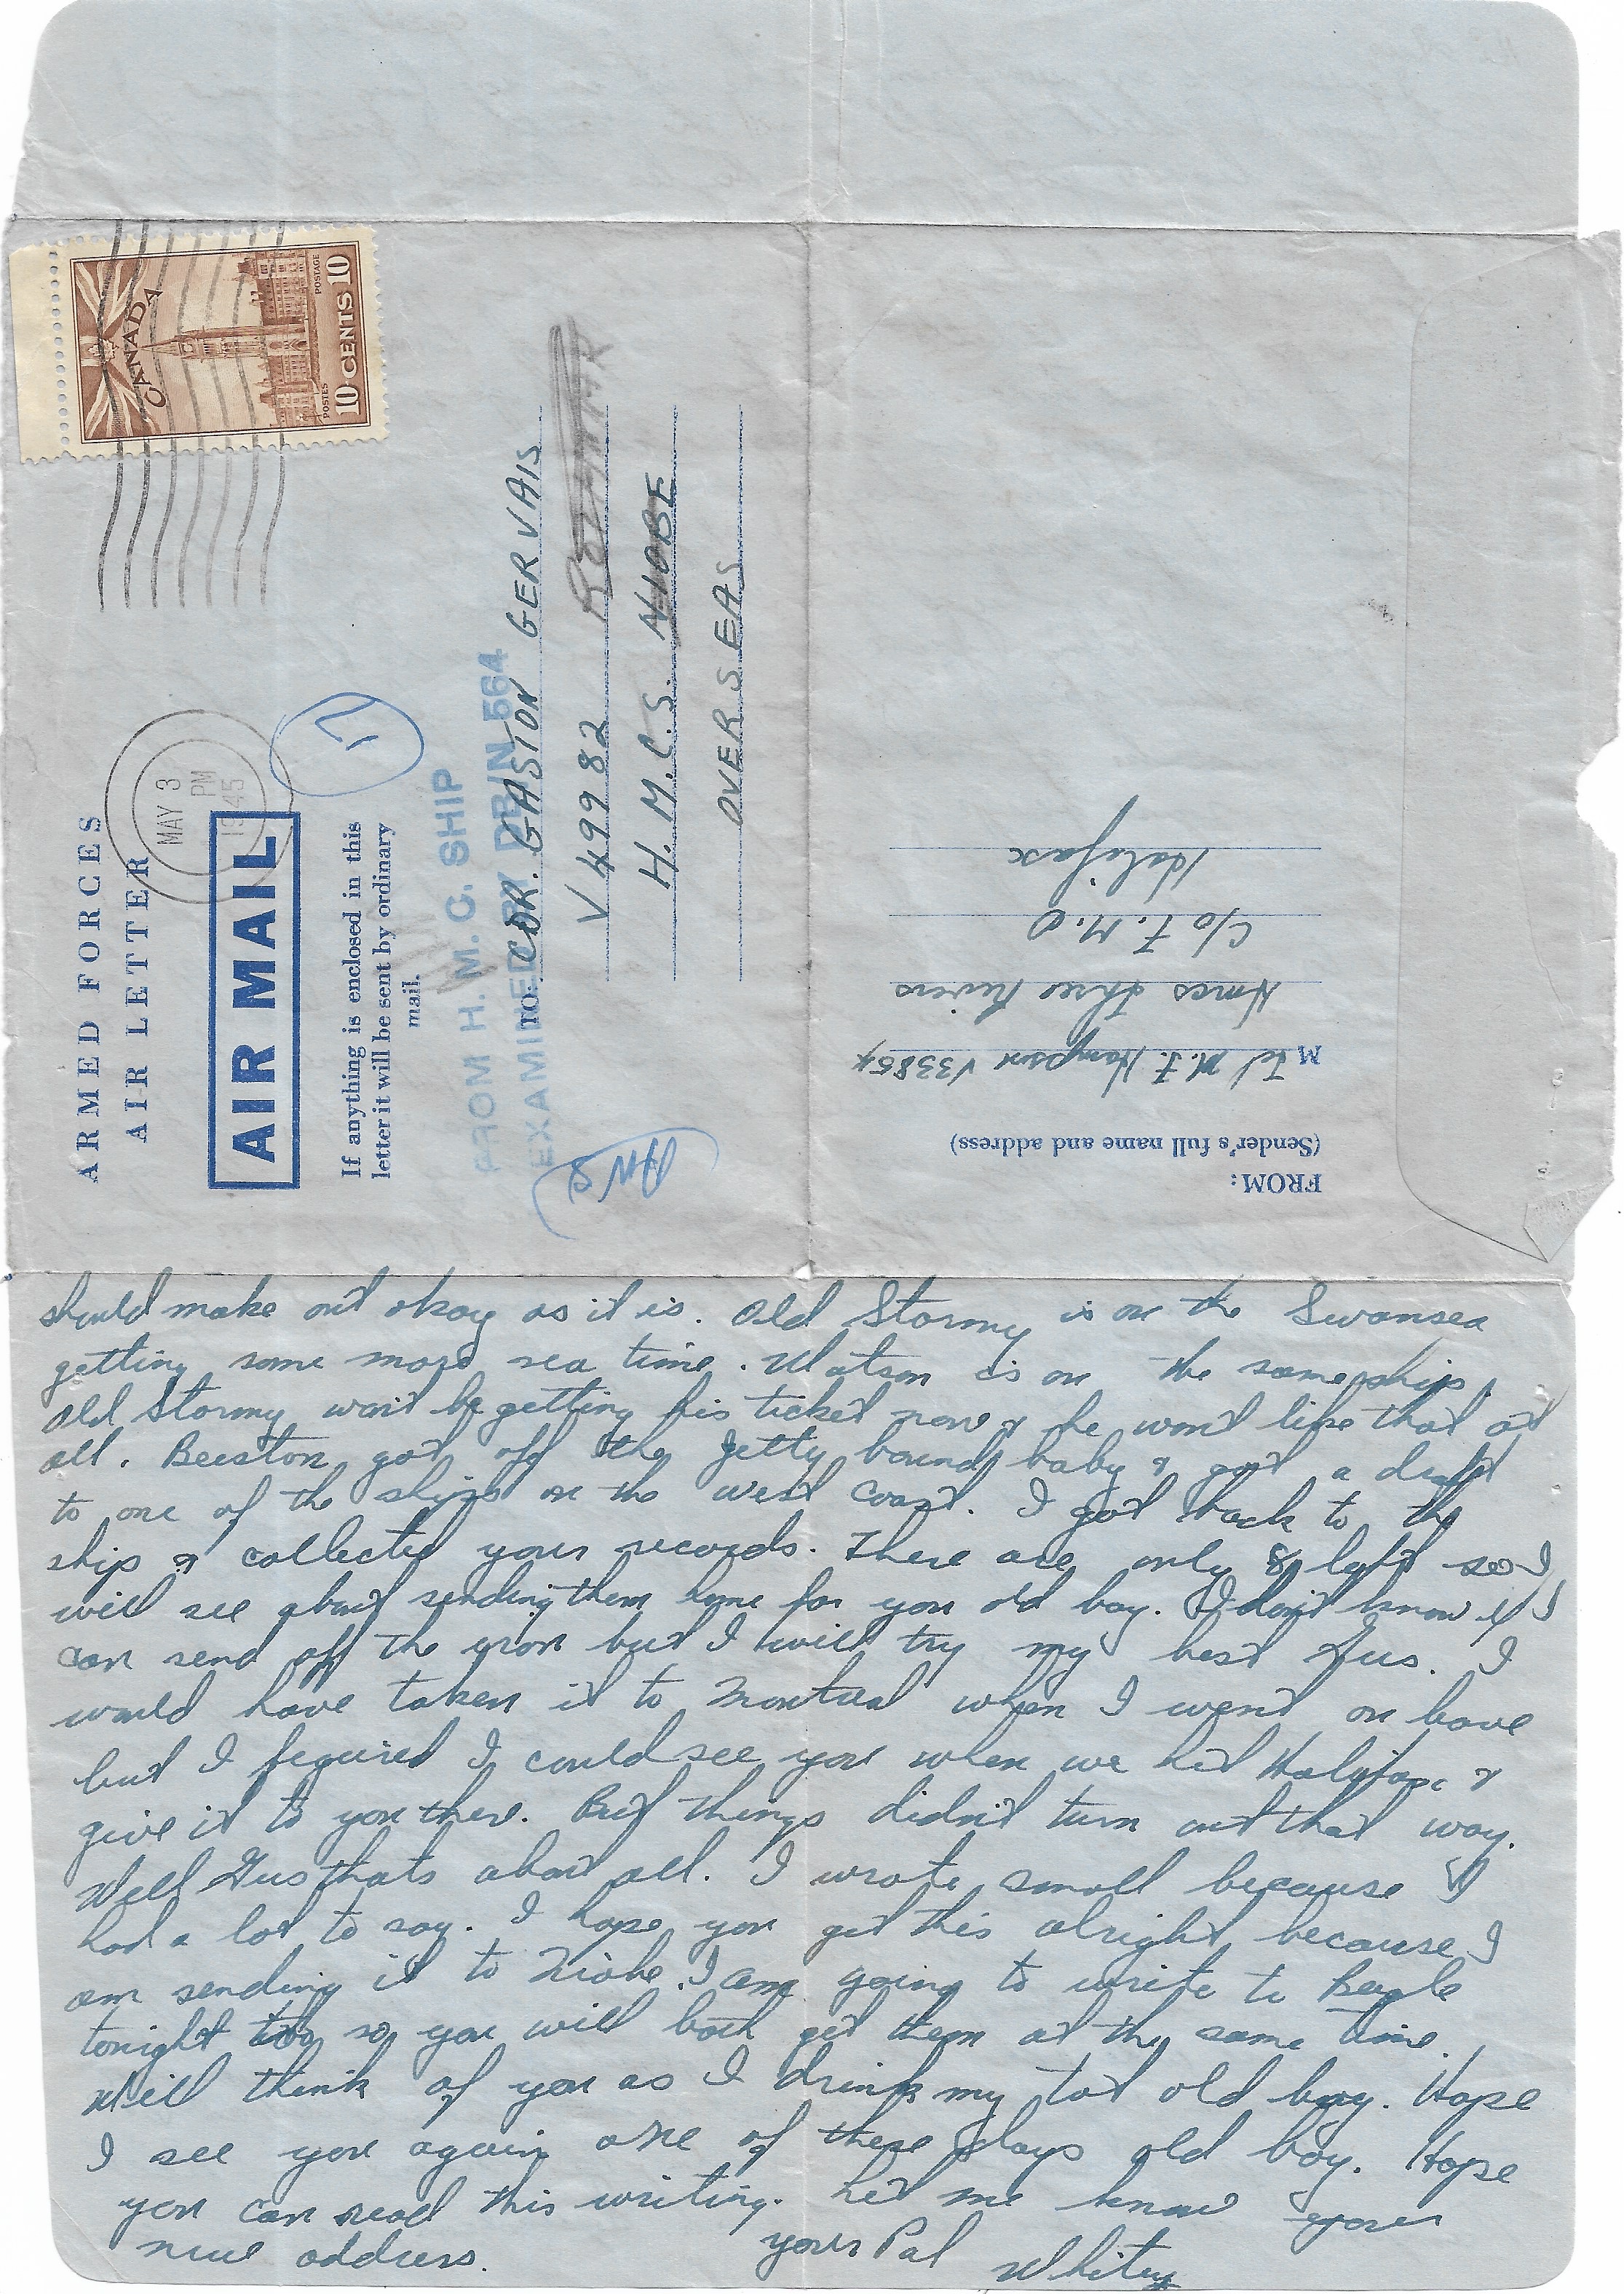 CANADA
POSTES POSTAGE
10 CENTS 10
MAY 3
PM
1945
ARMED FORCES
AIR LETTER
AIR MAIL
If anything is enclosed in this
letter it will be sent by ordinary
mail.
FROM H. M. C. SHIP
EXAMINED BY DBIN 564
TO: CDR. GASTON GERVAIS
V 49982
H. M. C. S. NIOBE
OVERSEAS
FROM:
(Sender's full name and address)
M Tel M. F. Hampson V33854
Hmcs Three Rivers
C/o F. M. O
Halifax
should make out okay as it is. Old Stormy is on the Swansea
getting some more sea time. Watson is on the same ship.
Old Stormy won't be getting his ticket now & he won't like that at
all. Beeston got off the Jetty bound baby & got a draft
to one of the ships on the west coast. I got back to the
ship & collected your records. There are only 8 left so I
will see about sending them home for you old boy. I don't know if I
can send off the gron but I will try my best Gus. I
would have taken it to Montreal when I went on leave
but I figured I could see you when we hit Halifax &
give it to you there. But things didn't turn out that way.
Well Gus thats about all. I wrote small because I
had a lot to say. I hope you get this alright because I
am sending it to Niobe. I am going to write to Beagle
tonight too so you will both get them at the same time.
Will think of you as I drink my tot old boy. Hope
I see you again one of these days old boy. Hope
you can read this writing. Let me know your
new address.
your Pal
Whitey